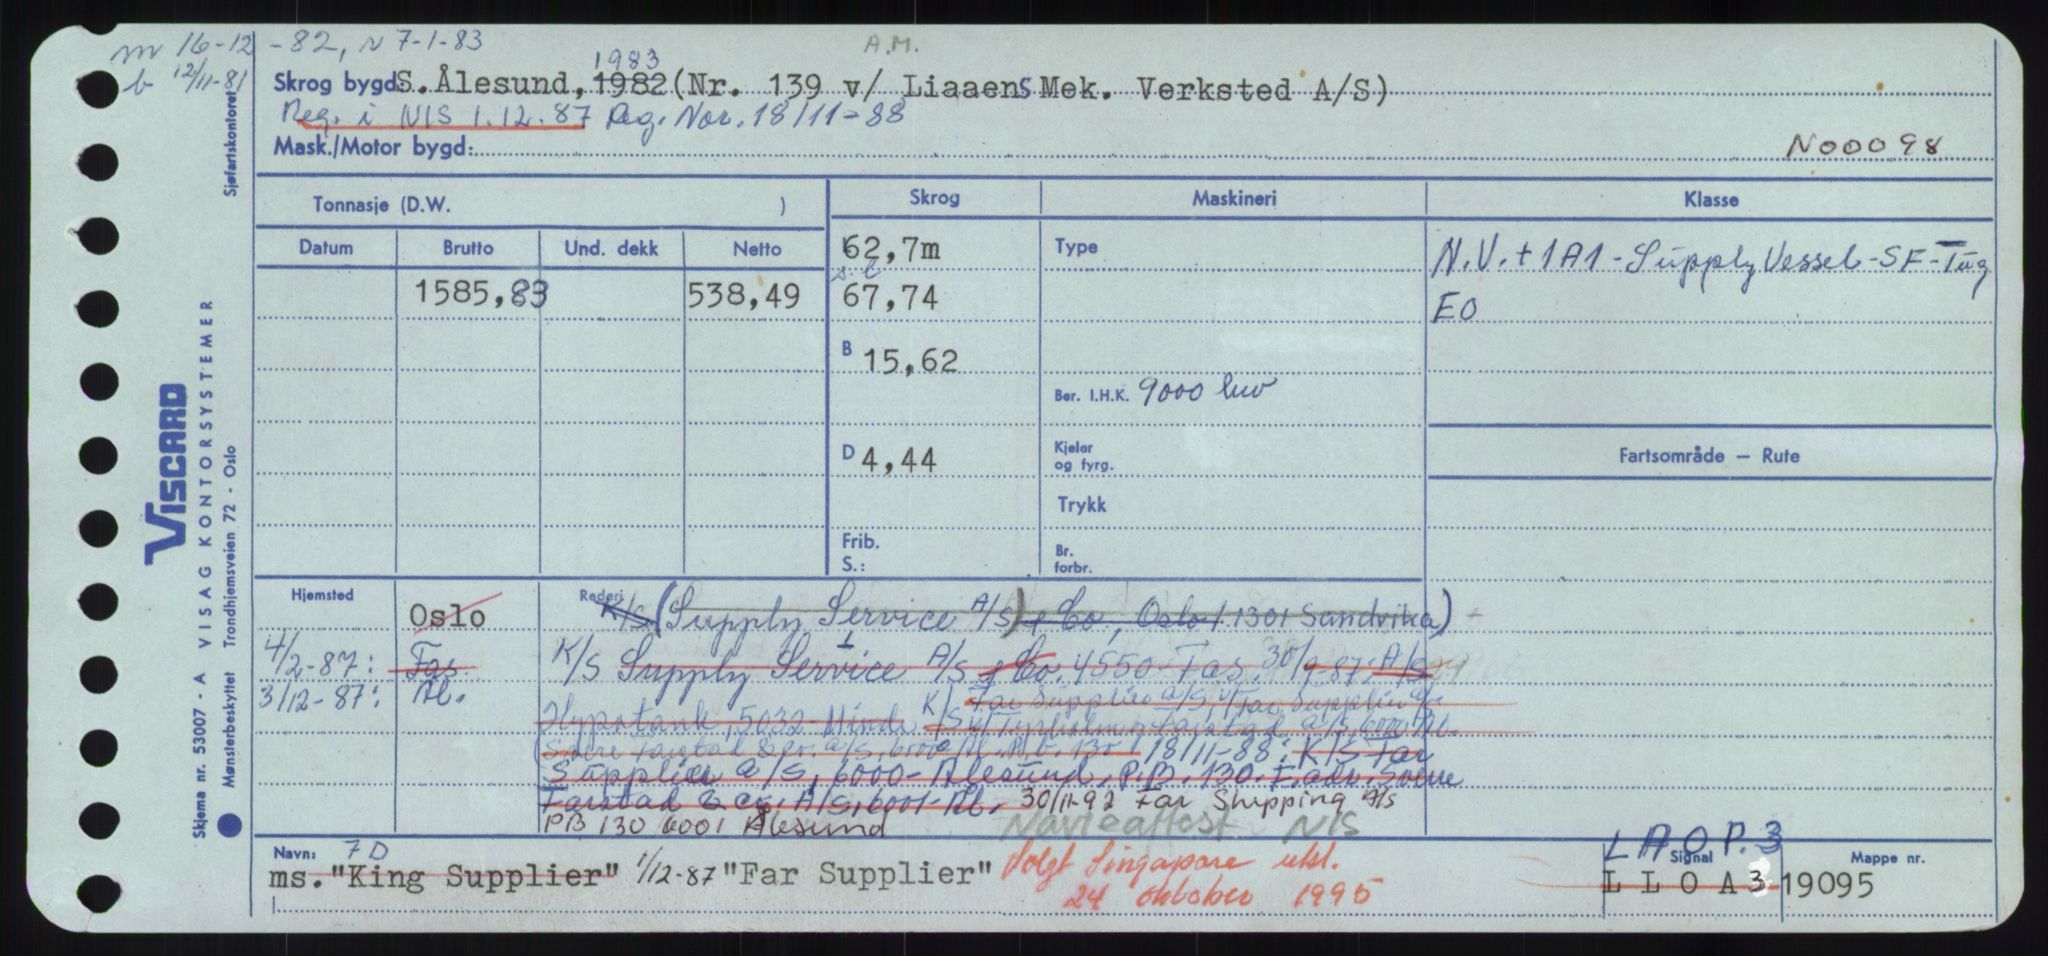 m 16-12-82, N 7-1-83
A.M.
b 12/11-81
1983
Skrog bygd: S. Ålesund, 1982 (Nr. 139 v/ Liaaens Mek. Verksted A/S)
Reg. i NIS 1.12.87 Reg. Nor. 18/11-88
Mask./Motor bygd:
N00098
Tonnasje (D.W. )
Skrog
Maskineri
Klasse
Datum Brutto Und. dekk Netto
L 62,7m
Type
N.V. + 1A1 - Supply Vessel - SF - Tug
1585,83 538,49
s l
67,74
EO
B 15,62
Ber. I.H.K. 9000
D 4,44
Kjeler
og fyrg.
Fartsområde — Rute
Trykk
Frib.
S.:
Br.
forbr.
Hjemsted Oslo
Rederi K/S (Supply Service A/S) & Co, Oslo 1301 Sandvika)
4/2-87: Fas. K/S Supply Service I A/S & Co. 4550 Fas. 30/9-87: A/S
3/12-87: Ål.
K/S Far Supplier a/s, v/Far Supplier a/s
Hypotank, 5032 Minde
Tyrholm & Farstad a/s, 6000 Ål.
(Sverre Farstad & co. a/s, 6000 Ål. P.b. 130) 18/11-88: K/S Far
Supplier a/s, 6000-Ålesund. P.B. 130. F.adr. Sverre
Farstad & co. A/S, 6001-Ål. 30/11-92 Far Shipping A/S
PB 130 6001 Ålesund
Navneattest NIS
Navn: 7D
ms. "King Supplier" 1/12-87 "Far Supplier"
Solgt Singapore utsl.
24 oktober 1995
LAOP.3
Signal
LLOA3
Mappe nr.
19095
Sjøfartskontoret
VISCARD
VISAG KONTORSYSTEMER
Skjema nr. 53007 - A
Mønsterbeskyttet Trondhjemsveien 72 - Oslo